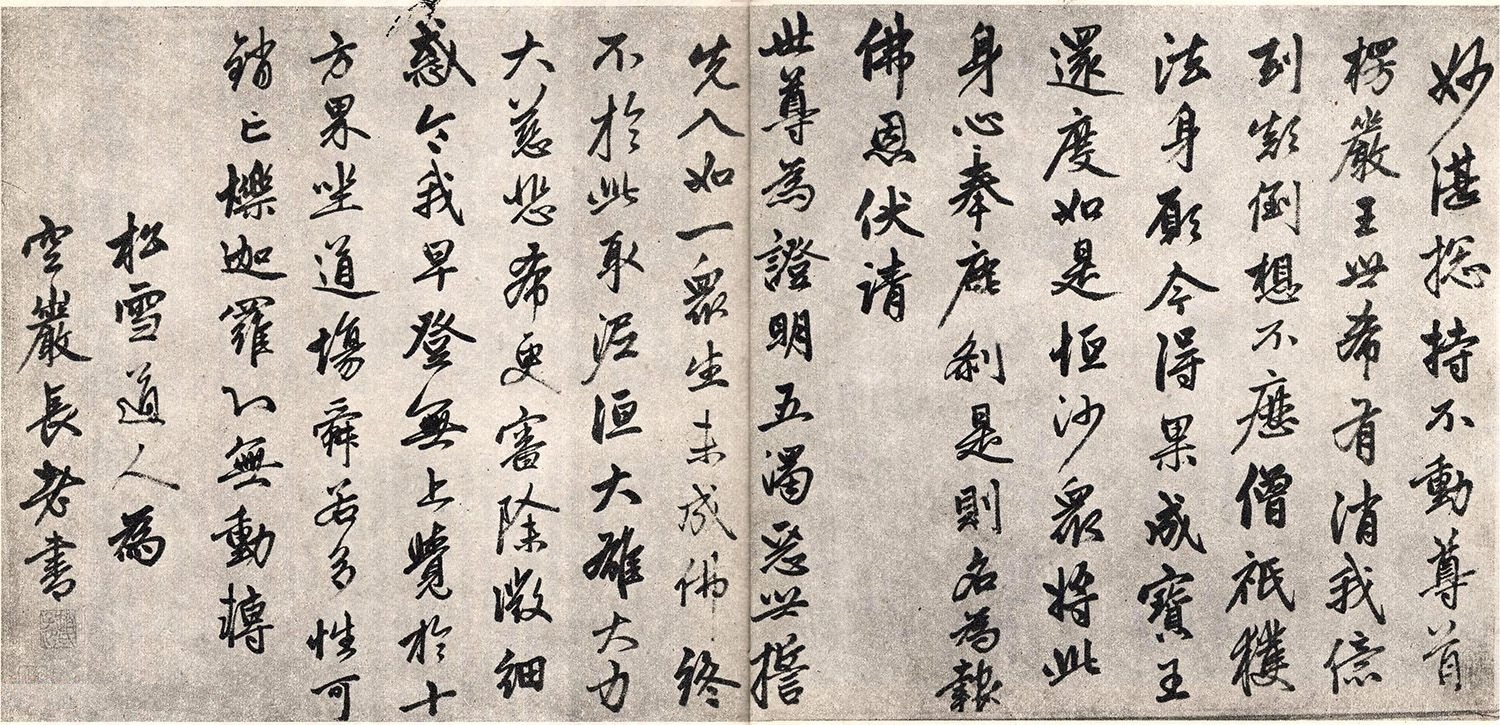 妙湛捴持不動尊首
楞嚴王世希有消我億
劫顛倒想不歷僧祇獲
法身願今得果成寶王
還度如是恒沙衆將此
身心奉塵剎是則名為報
佛恩伏請
世尊為證明五濁惡世誓
先入如一衆生未成佛終
不於此取泥洹大雄大力
大慈悲希更審除微細
惑令我早登無上覺於十
方界坐道場舜若多性可
銷亡爍迦羅心無動轉
松雪道人為
空巖長老書